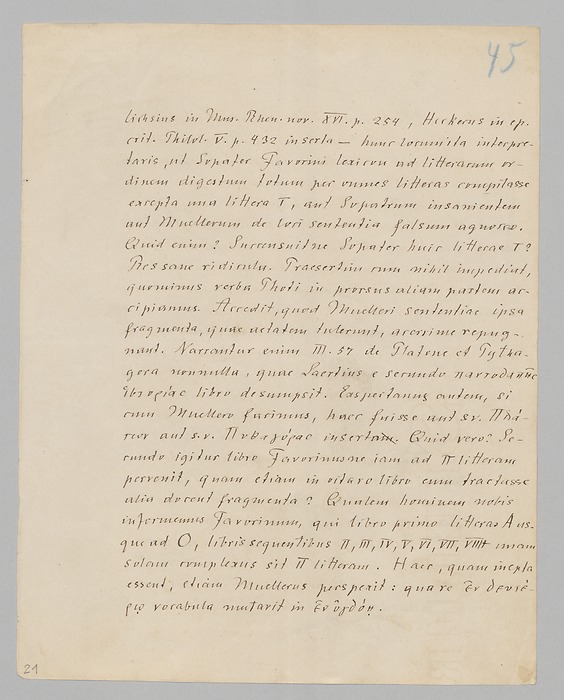 45
lichsius in Mus. Rhen. nov. XVI. p. 254, Herkerus in ep.
crit. Philol. V. p. 432 inserta — hunc locum ita interpre-
taris, ut Sopater Favorini lexicon ad litterarum or-
dinem digestum totum per omnes litteras compilasse
excepta una littera T, aut Sopatrum insanientem
aut Muellerum de loci sententia falsum agnosco.
Quid enim? Succensuitne Sopater huic litterae T?
Res sane ridicula. Praesertim cum nihil impediat,
quominus verba Photi in prorsus aliam partem ac-
cipiamus. Accedit, quod Muelleri sententiae ipsa
fragmenta, quae aetatem tulerunt, acerrime repug-
nant. Narrantur enim III. 57 de Platone et Pytha-
gora nonnulla, quae Laertius e secundo παντοδαπῆς
ἱστορίας libro desumpsit. Exspectamus autem, si
cum Muellero facimus, haec fuisse aut s.v. Πλά-
των aut s.v. Πυθαγόρας insertam. Quid vero? Se-
cundo igitur libro Favorinusne iam ad Π litteram
pervenit, quam etiam in octavo libro eum tractasse
alia docent fragmenta? Qualem hominem nobis
informemus Favorinum, qui libro primo litteras A us-
que ad O, libris sequentibus II, III, IV, V, VI, VII, VIII unam
solam complexus sit Π litteram. Haec, quam inepta
essent, etiam Muellerus perspexit: quare ἐν δευτέ-
ρῳ vocabula mutarit in ἐν ὀγδόῃ.
21